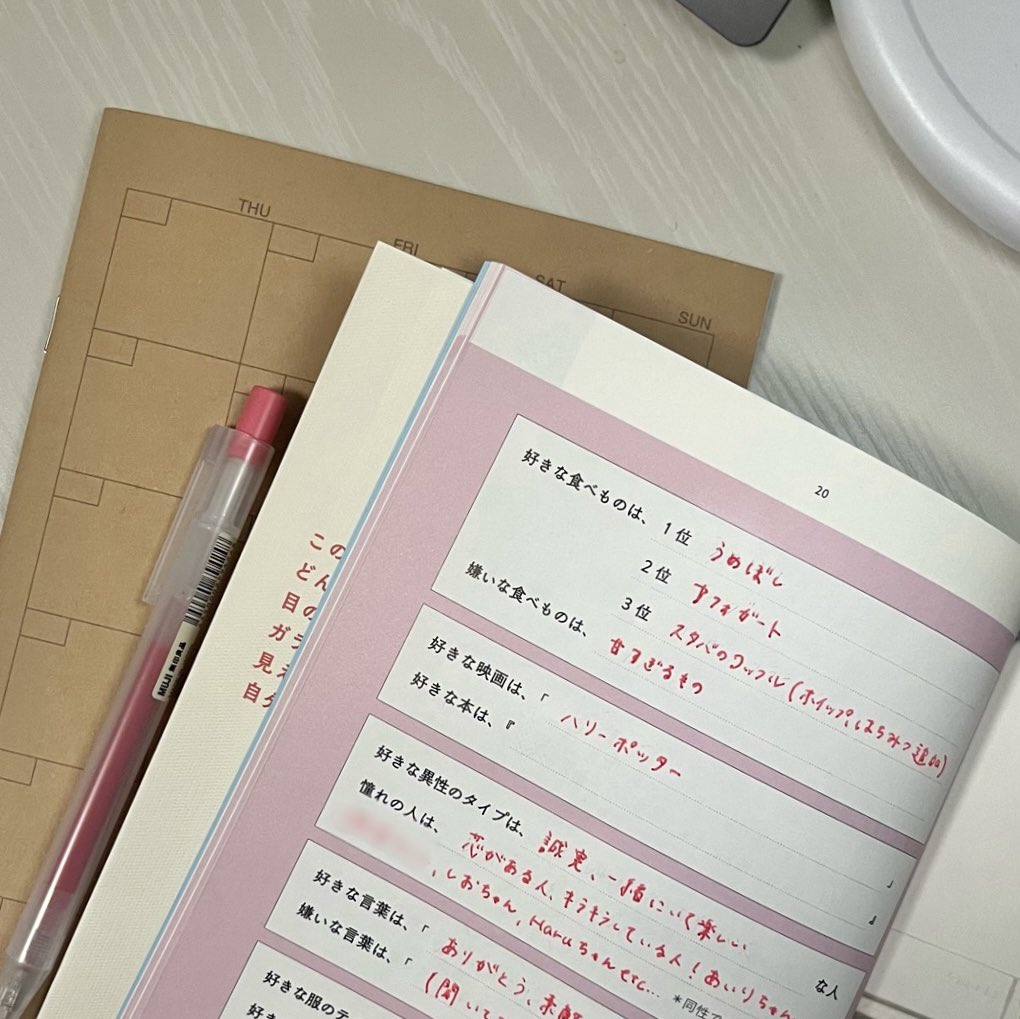 THU
FRI
SAT
SUN
MUJI 無印良品
この
どん
目の
ガラ
見え
自分
20
好きな食べものは、1位 うめぼし
2位
3位 スタバのワッフル(ホイップ、はちみつ追加)
嫌いな食べものは、甘すぎるもの
好きな映画は、「ハリーポッター
」
好きな本は、『
』
好きな異性のタイプは、誠実、一緒にいて楽しい
な人
憧れの人は、芯がある人、キラキラしている人!あいりちゃん
、しおちゃん、Haruちゃんetc...
*同性で
好きな言葉は、「ありがとう、素敵
嫌いな言葉は、「(聞いて
好きな服のテ
好き